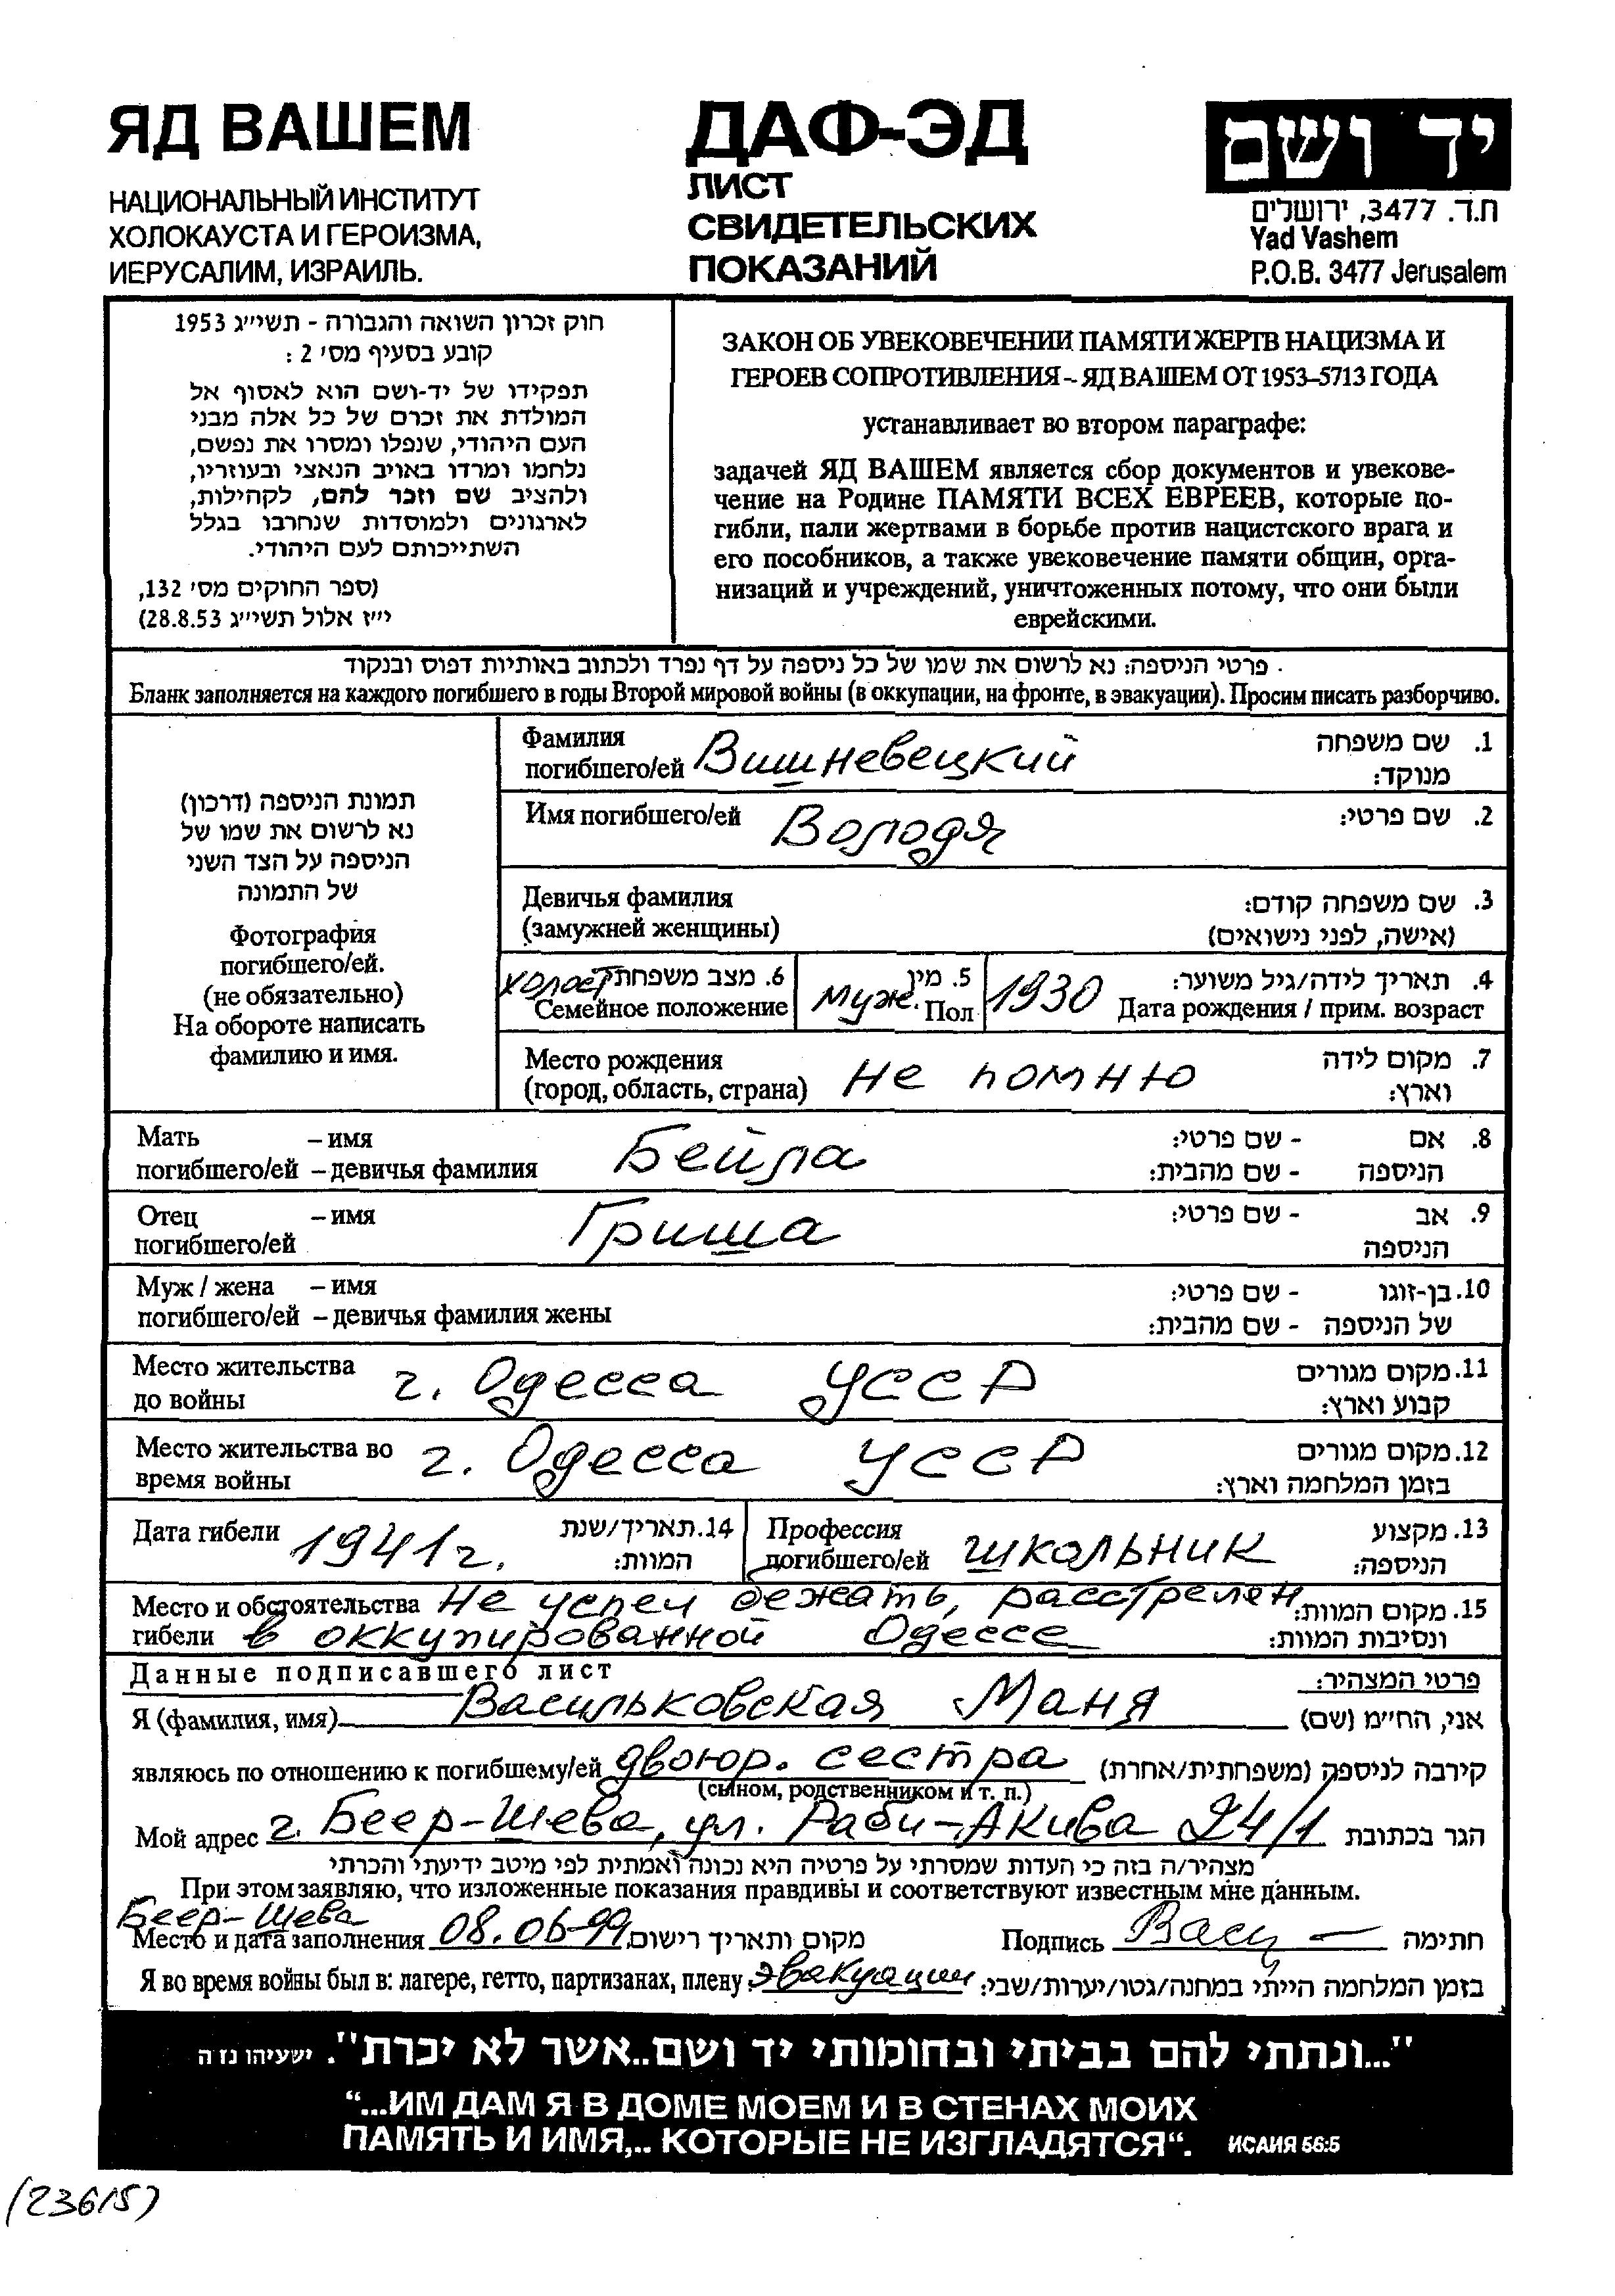 ЯД ВАШЕМ
НАЦИОНАЛЬНЫЙ ИНСТИТУТ
ХОЛОКАУСТА И ГЕРОИЗМА,
ИЕРУСАЛИМ, ИЗРАИЛЬ.
ДАФ-ЭД
ЛИСТ
СВИДЕТЕЛЬСКИХ
ПОКАЗАНИЙ
יד ושם
ת.ד. 3477, ירושלים
Yad Vashem
P.O.B. 3477 Jerusalem
חוק זכרון השואה והגבורה - תשי״ג 1953
קובע בסעיף מס׳ 2 :
תפקידו של יד-ושם הוא לאסוף אל
המולדת את זכרם של כל אלה מבני
העם היהודי, שנפלו ומסרו את נפשם,
נלחמו ומרדו באויב הנאצי ובעוזריו,
ולהציב שם וזכר להם, לקהילות,
לארגונים ולמוסדות שנחרבו בגלל
השתייכותם לעם היהודי.
(ספר החוקים מס׳ 132,
י״ז אלול תשי״ג 28.8.53)
ЗАКОН ОБ УВЕКОВЕЧЕНИИ ПАМЯТИ ЖЕРТВ НАЦИЗМА И
ГЕРОЕВ СОПРОТИВЛЕНИЯ – ЯД ВАШЕМ ОТ 1953–5713 ГОДА
устанавливает во втором параграфе:
задачей ЯД ВАШЕМ является сбор документов и увекове-
чение на Родине ПАМЯТИ ВСЕХ ЕВРЕЕВ, которые по-
гибли, пали жертвами в борьбе против нацистского врага и
его пособников, а также увековечение памяти общин, орга-
низаций и учреждений, уничтоженных потому, что они были
еврейскими.
פרטי הניספה: נא לרשום את שמו של כל ניספה על דף נפרד ולכתוב באותיות דפוס ובנקוד
Бланк заполняется на каждого погибшего в годы Второй мировой войны (в оккупации, на фронте, в эвакуации). Просим писать разборчиво.
תמונת הניספה (דרכון)
נא לרשום את שמו של
הניספה על הצד השני
של התמונה
Фотография
погибшего/ей.
(не обязательно)
На обороте написать
фамилию и имя.
Фамилия
погибшего/ей Вишневецкий
1. שם משפחה
מנוקד:
Имя погибшего/ей Володя 2. שם פרטי:
Девичья фамилия
(замужней женщины)
3. שם משפחה קודם:
(אישה, לפני נישואים)
холост 6. מצב משפחתי
Семейное положение
5. מין
муж. Пол
1930 4. תאריך לידה/גיל משוער:
Дата рождения / прим. возраст
Место рождения
(город, область, страна) не помню
7. מקום לידה
וארץ:
Мать – имя Бейла
погибшего/ей – девичья фамилия
8. אם - שם פרטי:
הניספה - שם מהבית:
Отец – имя Гриша
погибшего/ей
9. אב - שם פרטי:
הניספה
Муж / жена – имя
погибшего/ей – девичья фамилия жены
10. בן-זוגו - שם פרטי:
של הניספה - שם מהבית:
Место жительства
до войны г. Одесса УССР
11. מקום מגורים
קבוע וארץ:
Место жительства во
время войны г. Одесса УССР
12. מקום מגורים
בזמן המלחמה וארץ:
Дата гибели 1941г. 14. תאריך/שנת
המוות:
Профессия
погибшего/ей школьник
13. מקצוע
הניספה:
Место и обстоятельства Не успел бежать, расстрелен
гибели в оккупированной Одессе
15. מקום המוות:
ונסיבות המוות:
Данные подписавшего лист פרטי המצהיר:
Я (фамилия, имя) Васильковская Маня אני, הח״מ (שם)
являюсь по отношению к погибшему/ей двоюр. сестра קירבה לניספה (משפחתית/אחרת)
(сыном, родственником и т. п.)
Мой адрес г. Беер-Шева, ул. Раби-Акива 24/1 הגר בכתובת
מצהיר/ה בזה כי העדות שמסרתי על פרטיה היא נכונה ואמתית לפי מיטב ידיעתי והכרתי
При этом заявляю, что изложенные показания правдивы и соответствуют известным мне данным.
Беер-Шева
Место и дата заполнения 08.06-99 מקום ותאריך רישום Подпись Васи חתימה
Я во время войны был в: лагере, гетто, партизанах, плену эвакуации בזמן המלחמה הייתי במחנה/גטו/יערות/שבי:
״...ונתתי להם בביתי ובחומותי יד ושם..אשר לא יכרת״. ישעיהו נז ה
“...ИМ ДАМ Я В ДОМЕ МОЕМ И В СТЕНАХ МОИХ
ПАМЯТЬ И ИМЯ,.. КОТОРЫЕ НЕ ИЗГЛАДЯТСЯ“. ИСАИЯ 56:5
(23615)